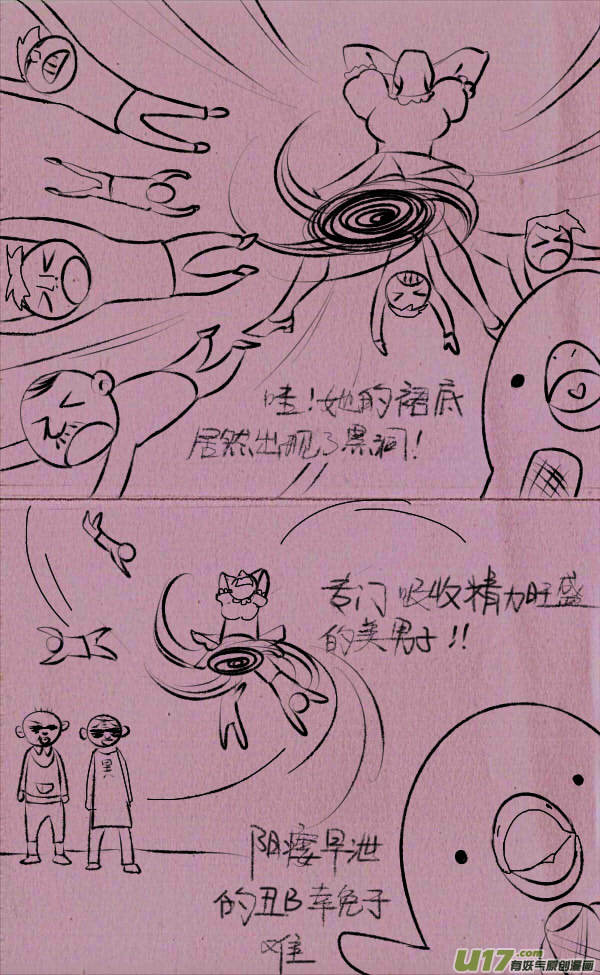 哇!她的裙底
居然出现了黑洞!
专门吸收精力旺盛
的美男子!!
黑
阴痿早泄
的丑B幸免于
难
U17.com
有妖气原创漫画